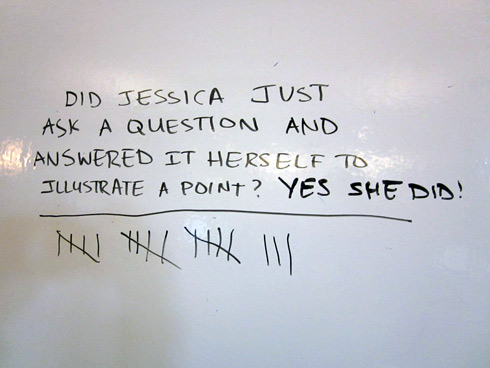 DID JESSICA JUST
ASK A QUESTION AND
ANSWERED IT HERSELF TO
ILLUSTRATE A POINT? YES SHE DID!